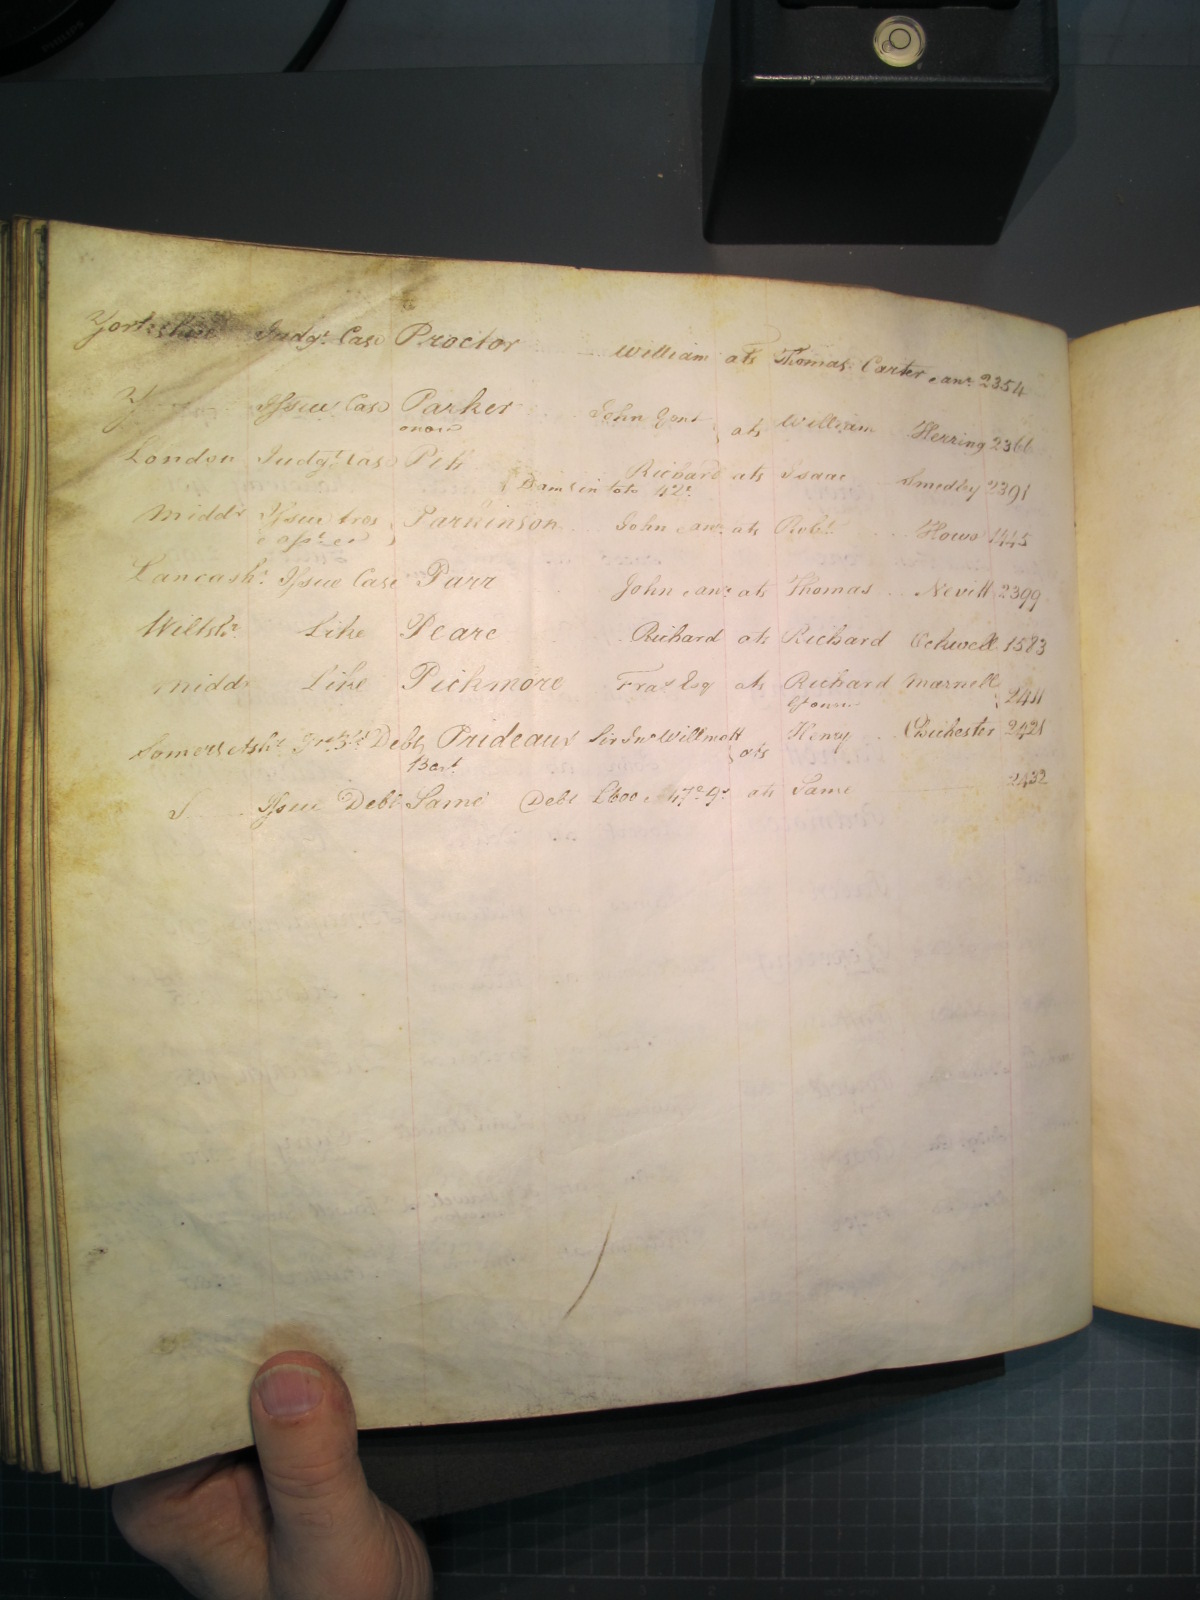 Yorkshire Judgt. Case Proctor William ats Thomas Carter & anr. 2354
Y Issue Case Parker John Gent ats William Herring 2366
London Judgt. Case Richard ats Isaac Smedley 2391
Dams in toto 42s.
Middx Issue tres Parkinson John & anr. ats Robt. Howo 1445
Lancashr. Issue Case Parr John & anr. ats Thomas Nevill 2399
Wiltshr. Like Pearc Richard ats Richard Ockwell 1583
Midd Like Pickmore Fras. Esq ats Richard Marnell
2411
Somersetshr. Debt Prideaux Sir Jno. Willmott ats Henry Chichester 2421
Bart.
S Issue Debt Same Debt £600 & 47s. 9d. ats Same 2432